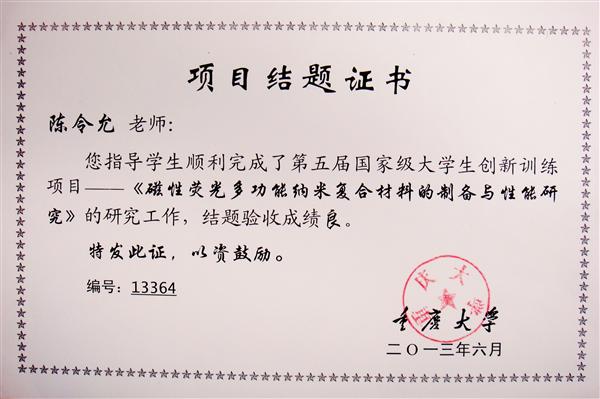 项目结题证书
陈令允 老师：
您指导学生顺利完成了第五届国家级大学生创新训练
项目——《磁性荧光多功能纳米复合材料的制备与性能研
究》的研究工作，结题验收成绩良。
特发此证，以资鼓励。
编号：13364
重庆大学
重庆大学
二〇一三年六月